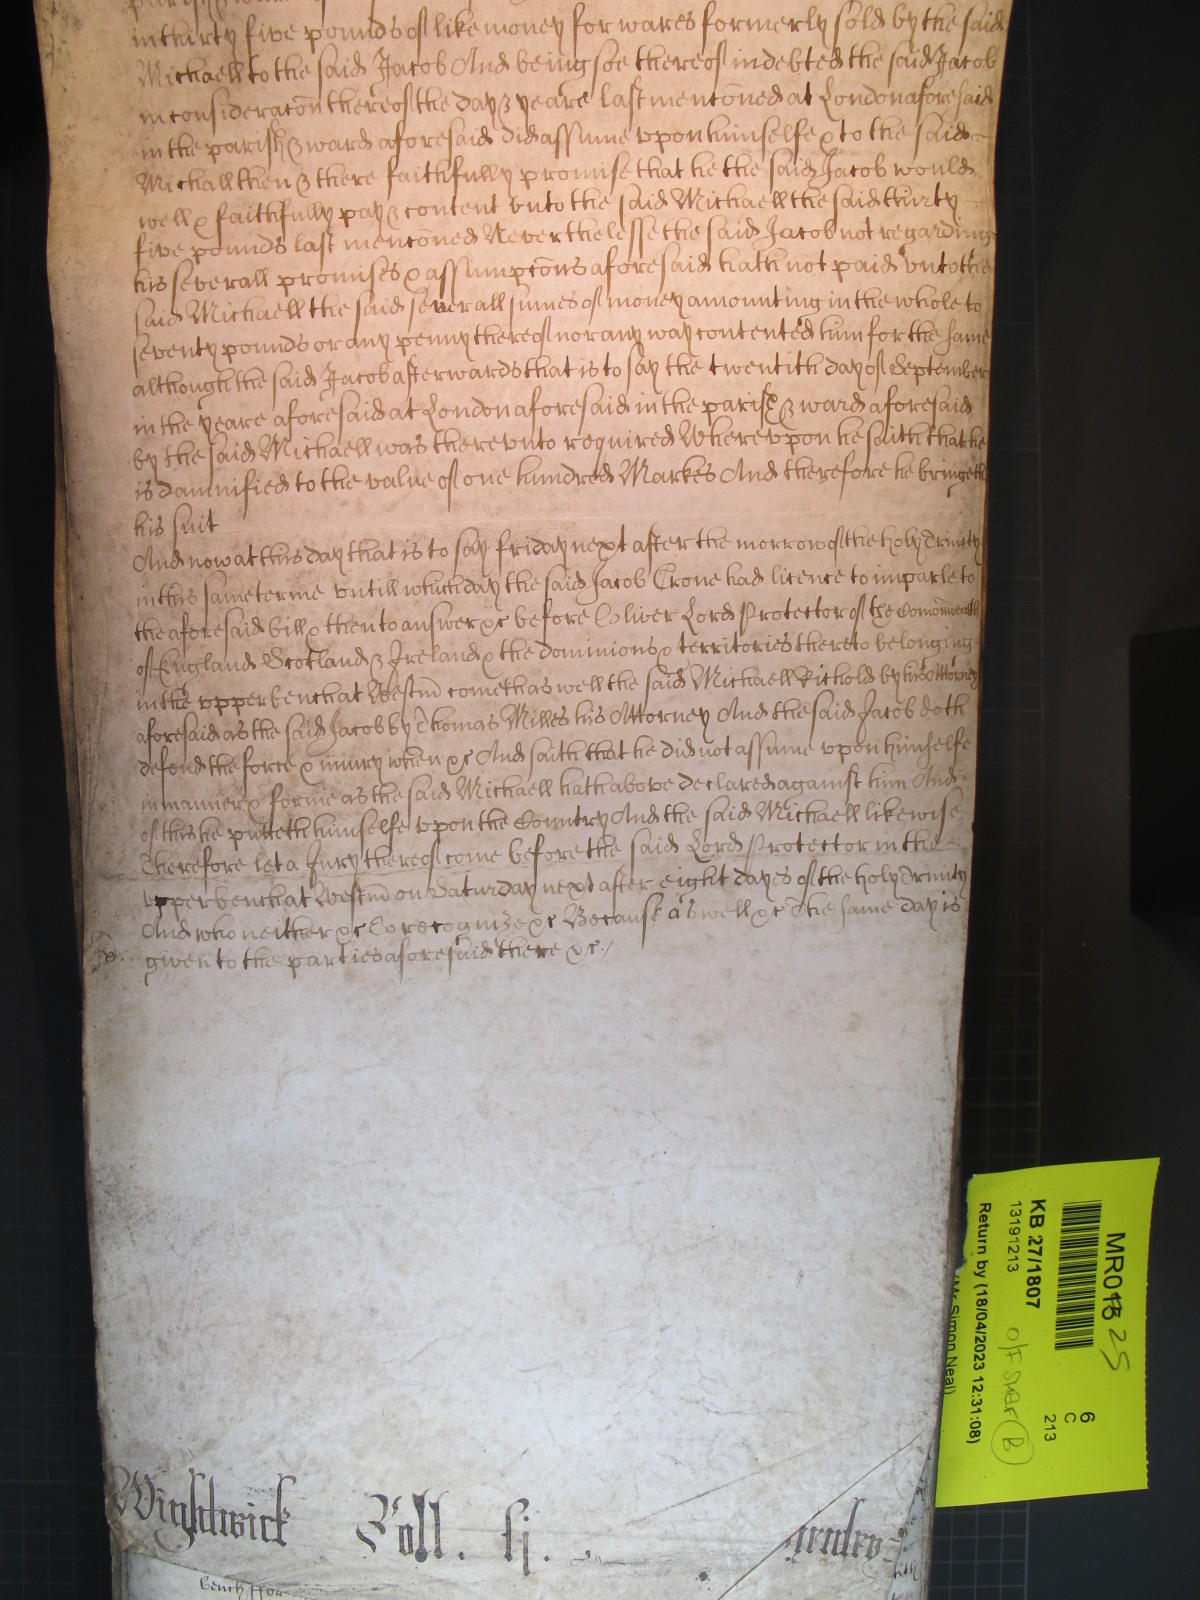 in thirty five pounds of like money for wares formerly sold by the said
Michaell to the said Jacob And being soe thereof indebted the said Jacob
in consideracon thereof the day & yeare last mentoned at London aforesaid
in the parish & ward aforesaid did assume vpon himselfe & to the said
Michaell then & there faithfully promise that he the said Jacob would
well & faithfully pay & content vnto the said Michaell the said thirty
five pounds last mentoned Neverthelesse the said Jacob not regarding
his severall promises & assumptons aforesaid hath not paid vnto the
said Michaell the said severall sumes of money amounting in the whole to
seventy pounds or any penny thereof nor any way contented him for the same
although the said Jacob afterwards that is to say the twentith day of September
in the yeare aforesaid at London aforesaid in the parish & ward aforesaid
by the said Michaell was therevnto required Wherevpon he saith that he
is damnified to the value of one hundred Markes And therefore he bringeth
his suit
And now at this day that is to say friday next after the morrow of the holy Trinity
in this same terme vntill which day the said Jacob Crone had licence to imparle to
the aforesaid bill & then to answer &c before Oliver Lord Protector of the Comonwealth
of England Scotland & Ireland & the dominions & territories thereto belonging
in the vpper bench at Westm cometh as well the said Michaell Richold by his Attorney
aforesaid as the said Jacob by Thomas Milles his Attorney And the said Jacob doth
defend the force & iniury when &c And saith that he did not assume vpon himselfe
in manner & forme as the said Michaell hath above declared against him And
of this he putteth himselfe vpon the Country And the said Michaell likewise
Therefore let a Jury thereof come before the said Lord Protector in the
vpper bench at Westm on Saturday next after eight dayes of the holy Trinity
And who neither &c To recognize &c Because as well &c The same day is
given to the parties aforesaid there &c
Wightwick Roll.
bench for
MR018 25
KB 27/1807
13191213
Return by (18/04/2023 12:31:08)
(Mr Simon Neal)
6
C
213
B